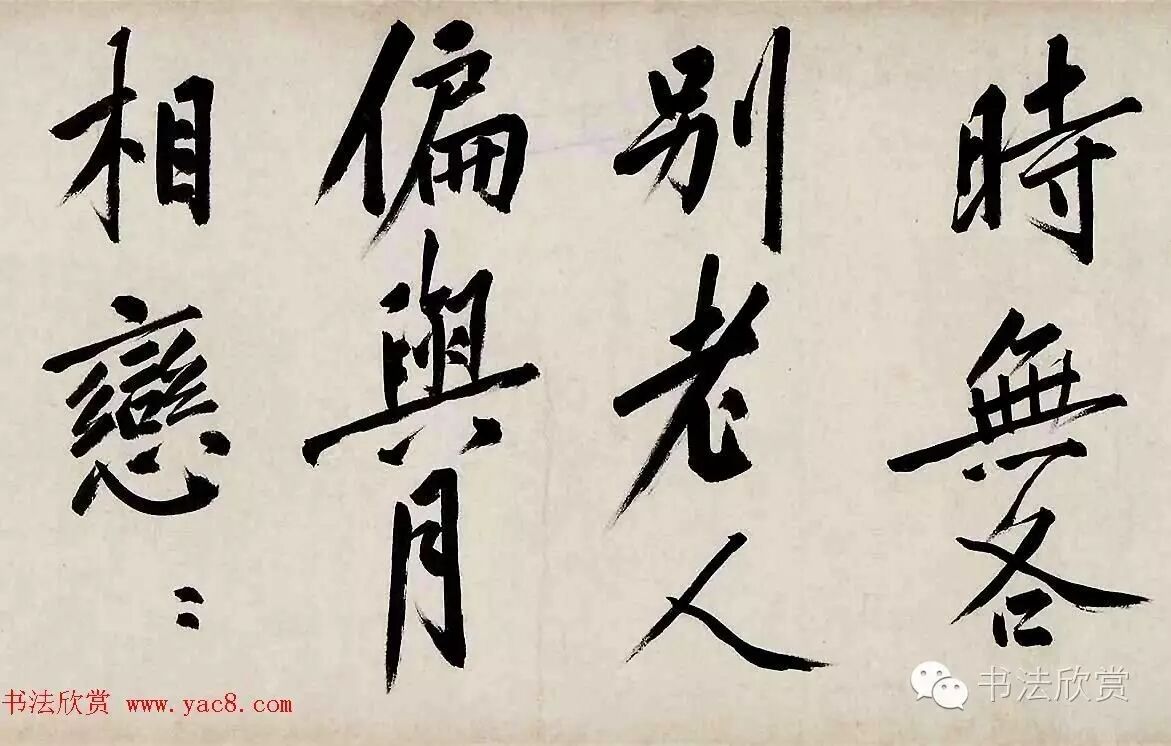 時無各
別老人
偏與月
相戀〻
书法欣赏 www.yac8.com
书法欣赏